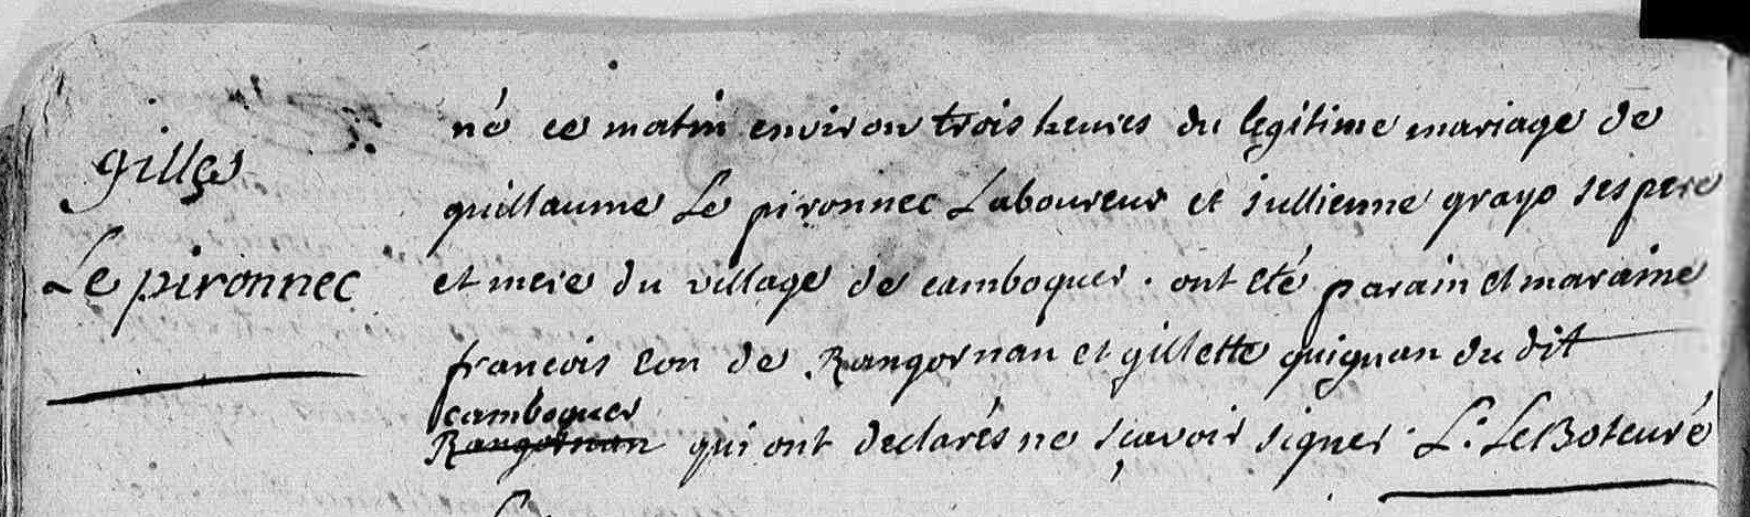 gilles
Le pironnec
né ce matin environ trois heures du legitime mariage de
guillaume Le pironnec Laboureur et jullienne grayo ses pere
et mere du village de camboguer. ont été parain et maraine
francois eon de Rangornan et gillette guignan du dit
camboguer
Rangornan qui ont declarés ne sçavoir signer. L: LeBoteuré